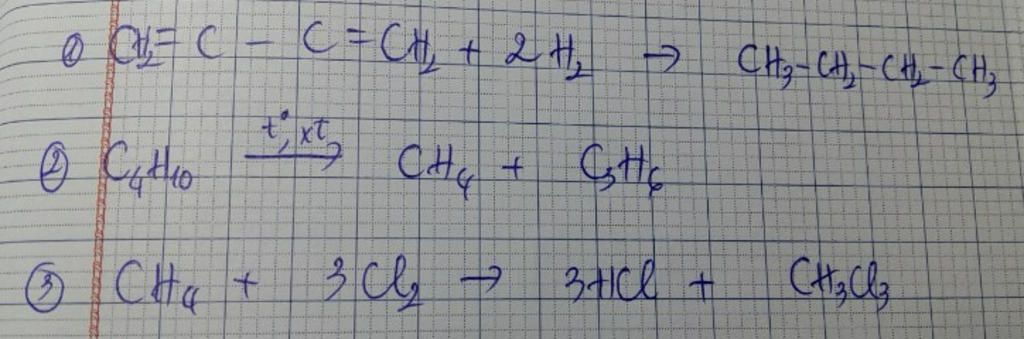 ① CH₂ = C – C = CH₂ + 2H₂ → CH₃–CH₂–CH₂–CH₃
② C₄H₁₀ —t°, xt→ CH₄ + C₃H₆
③ CH₄ + 3Cl₂ → 3HCl + CH₃Cl₃